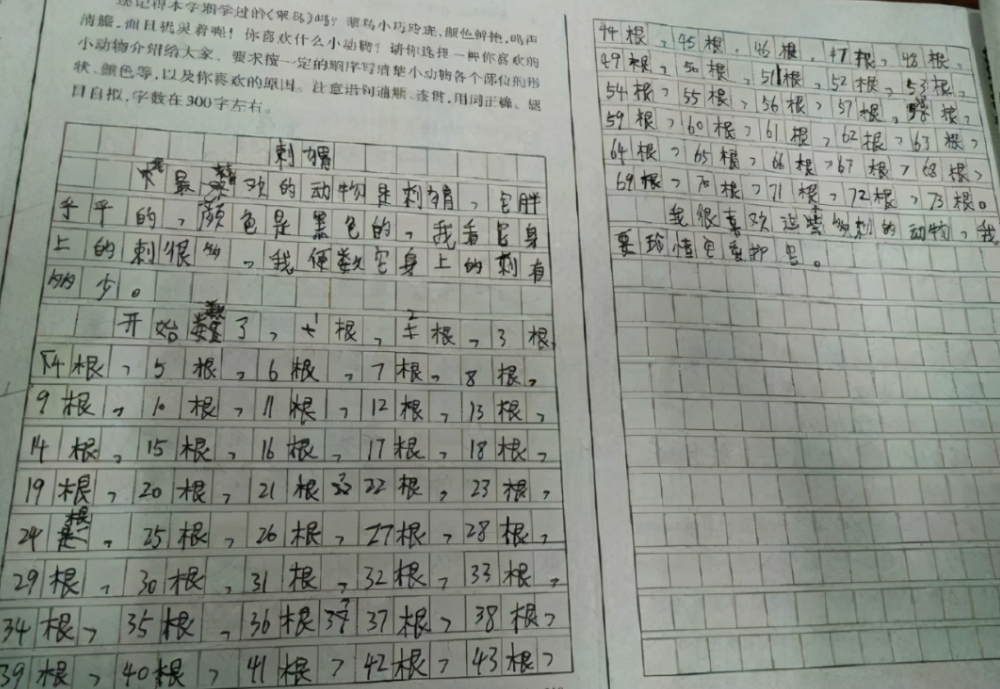 还记得本学期学过的《翠鸟》吗？翠鸟小巧玲珑、颜色鲜艳，鸣声
清脆，而且机灵着呢！你喜欢什么小动物？请你选择一种你喜欢的
小动物介绍给大家。要求按一定的顺序写清楚小动物各个部位的形
状、颜色等，以及你喜欢的原因。注意语句通顺、连贯，用词正确。题
目自拟，字数在300字左右。
刺猬
我最喜欢的动物是刺猬，它胖
乎乎的，颜色是黑色的，我看它身
上的刺很多，我便数它身上的刺有
多少。
开始数了，1根，2根，3根
4根，5根，6根，7根，8根，
9根，10根，11根，12根，13根，
14根，15根，16根，17根，18根，
19根，20根，21根，22根，23根，
24根，25根，26根，27根，28根，
29根，30根，31根，32根，33根，
34根，35根，36根，37根，38根，
39根，40根，41根，42根，43根，
44根，45根，46根，47根，48根，
49根，50根，51根，52根，53根，
54根，55根，56根，57根，58根，
59根，60根，61根，62根，63根，
64根，65根，66根，67根，68根，
69根，70根，71根，72根，73根。
我很喜欢这些多刺的动物，我
要珍惜它爱护它。